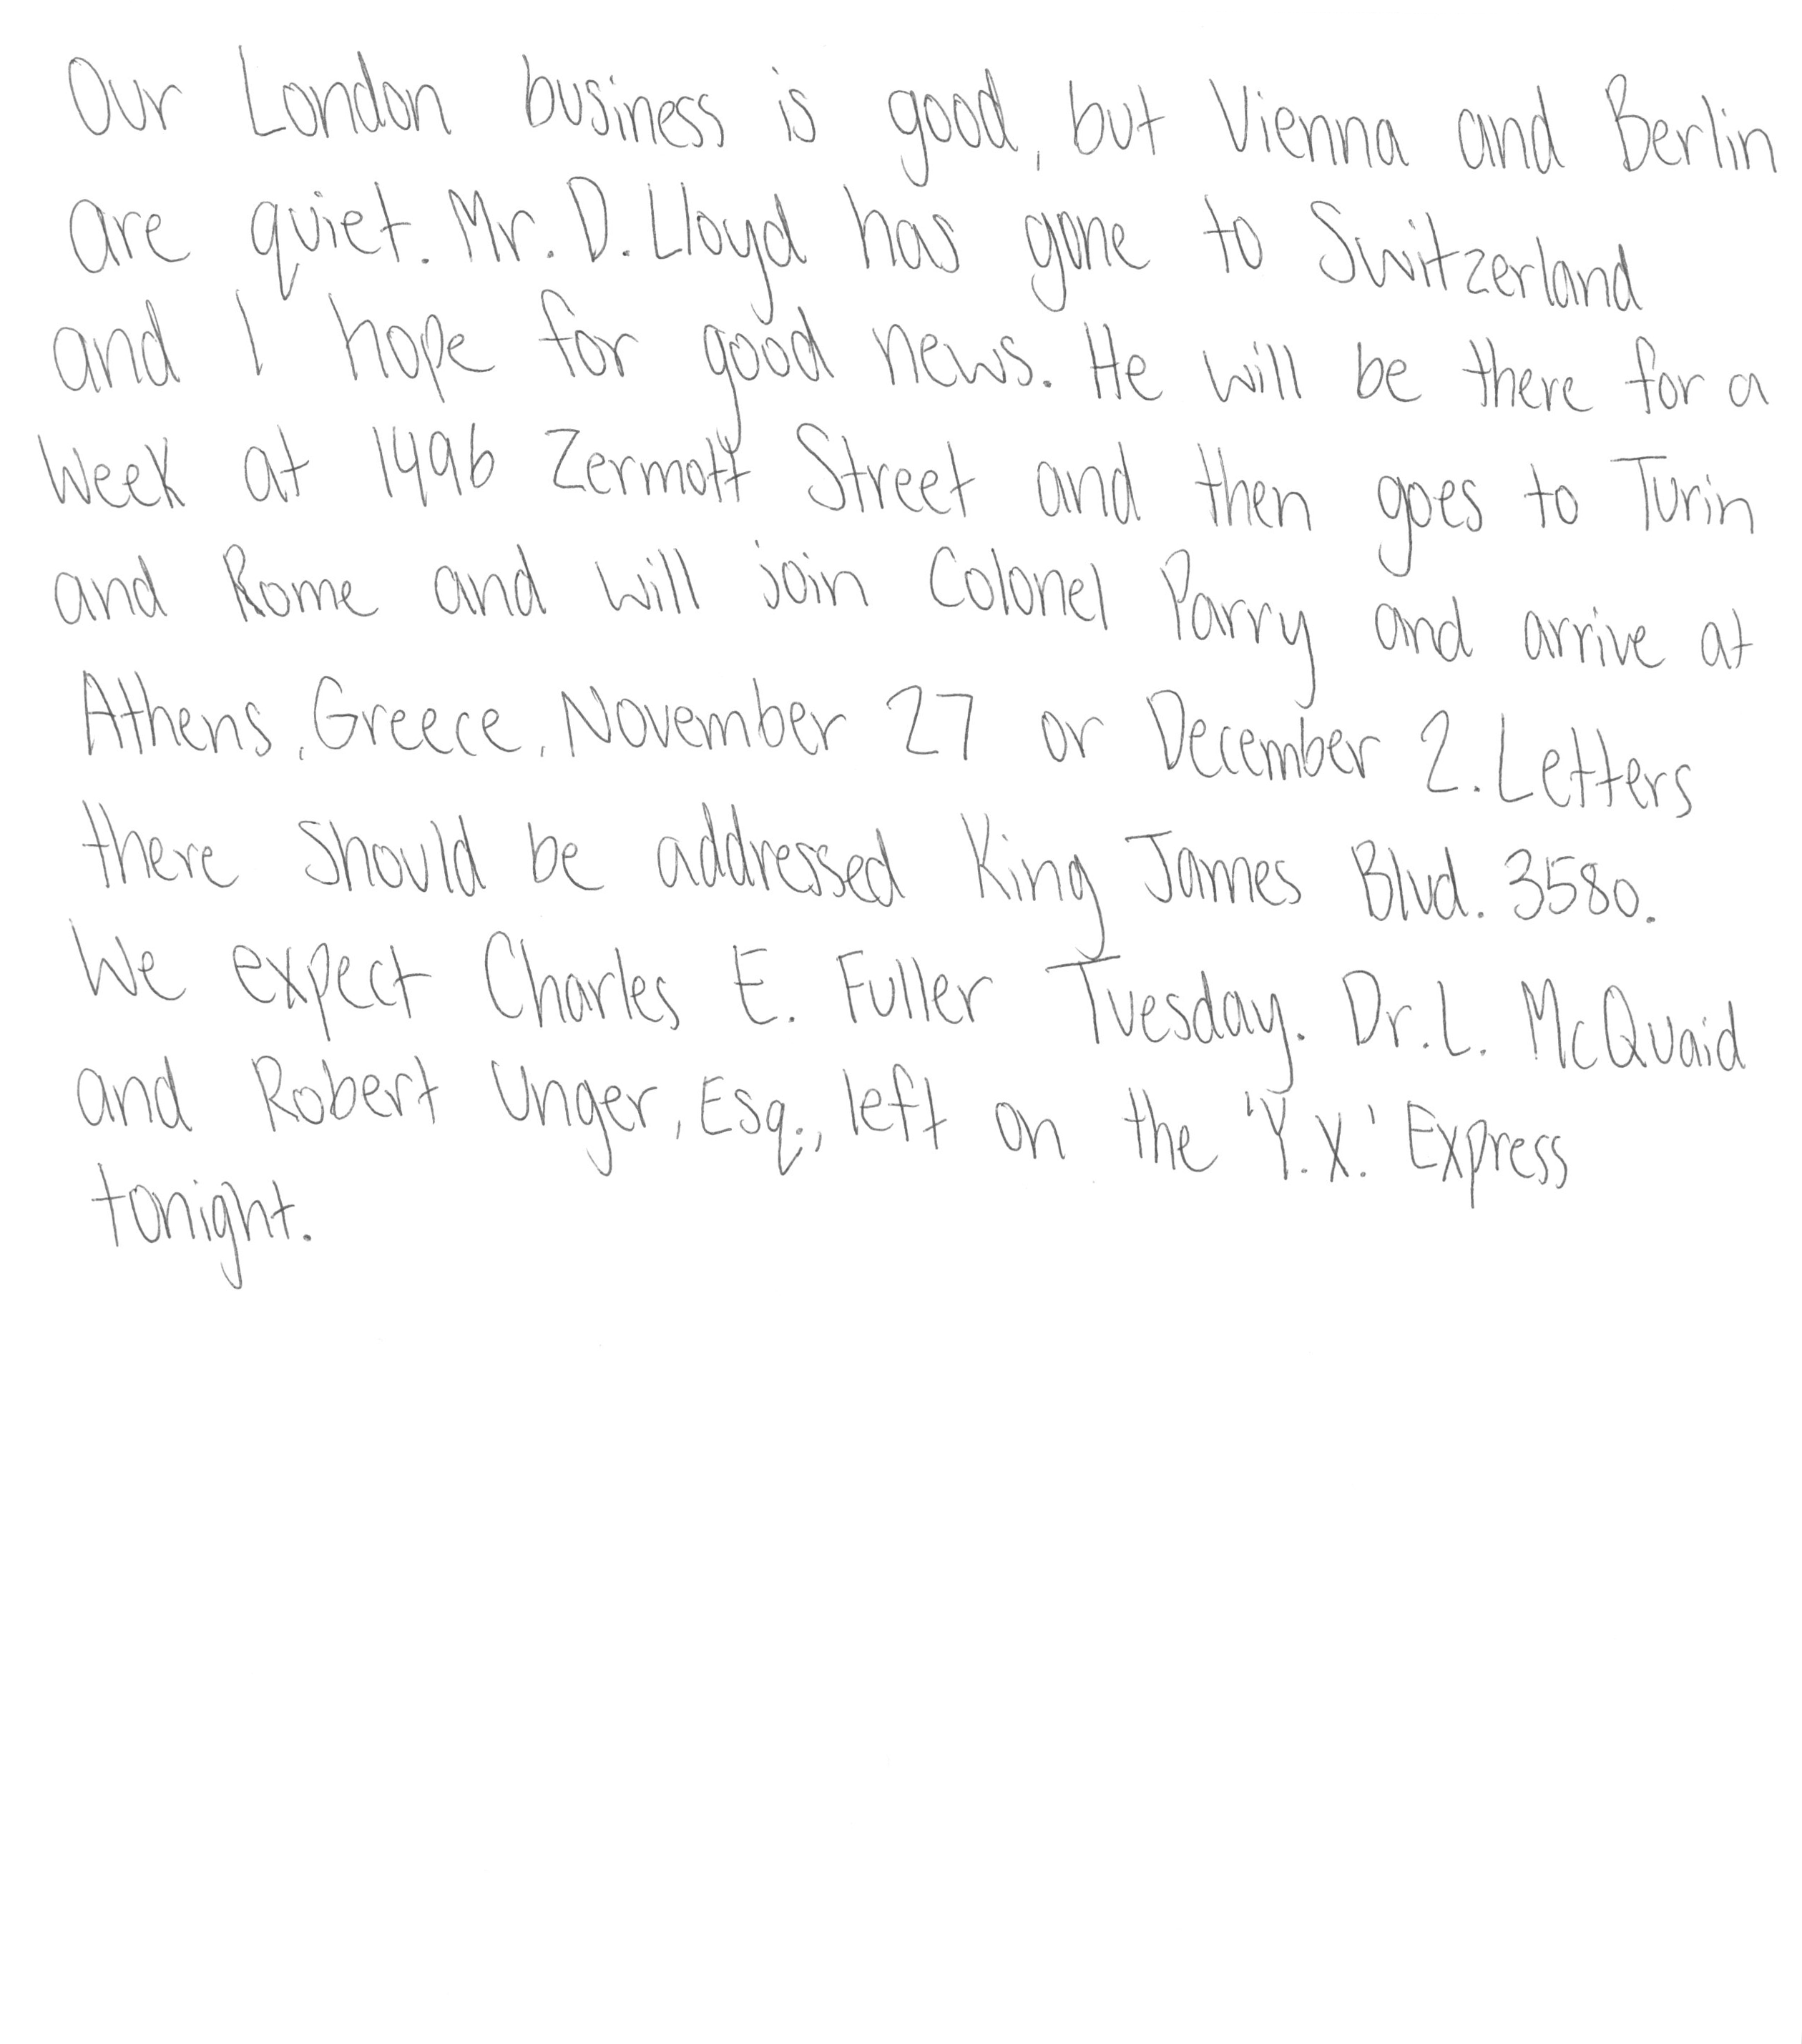 Our London business is good, but Vienna and Berlin
are quiet. Mr. D. Lloyd has gone to Switzerland
and I hope for good news. He will be there for a
week at 1496 Zermott Street and then goes to Turin
and Rome and will join Colonel Parry and arrive at
Athens, Greece, November 27 or December 2. Letters
there should be addressed King James Blvd. 3580.
We expect Charles E. Fuller Tuesday. Dr. L. McQuaid
and Robert Unger, Esq., left on the 'Y.X.' Express
tonight.